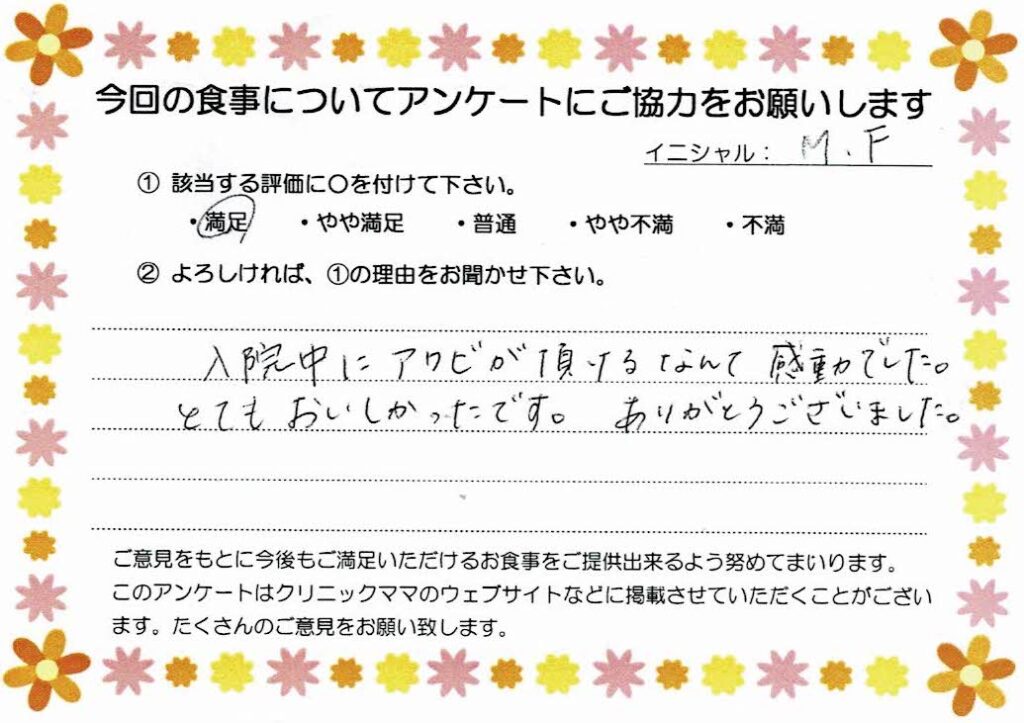 今回の食事についてアンケートにご協力をお願いします
イニシャル： M.F
① 該当する評価に〇を付けて下さい。
・満足 ・やや満足 ・普通 ・やや不満 ・不満
② よろしければ、①の理由をお聞かせ下さい。
入院中にアワビが頂けるなんて感動でした。
とてもおいしかったです。ありがとうございました。
ご意見をもとに今後もご満足いただけるお食事をご提供出来るよう努めてまいります。
このアンケートはクリニックママのウェブサイトなどに掲載させていただくことがござい
ます。たくさんのご意見をお願い致します。